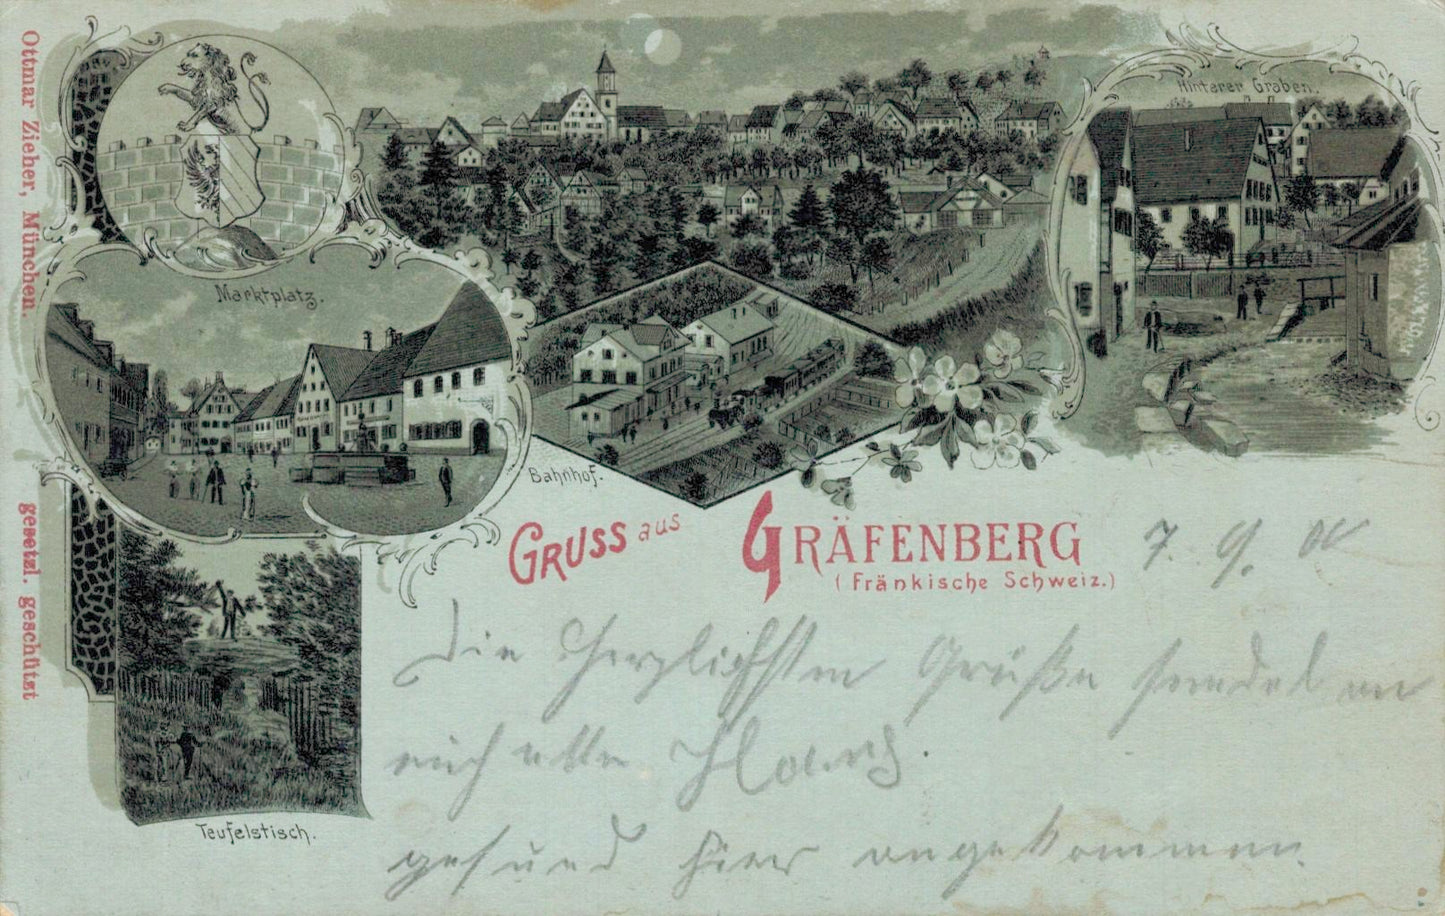 Ottmar Zieher, München.
gesetzl. geschützt
Marktplatz.
Hinterer Graben.
Bahnhof.
Teufelstisch.
GRUSS aus GRÄFENBERG
(Fränkische Schweiz.)
7. 9. 00
Die Herzlichsten Grüße sendet an
euch alle
gesund hier angekommen